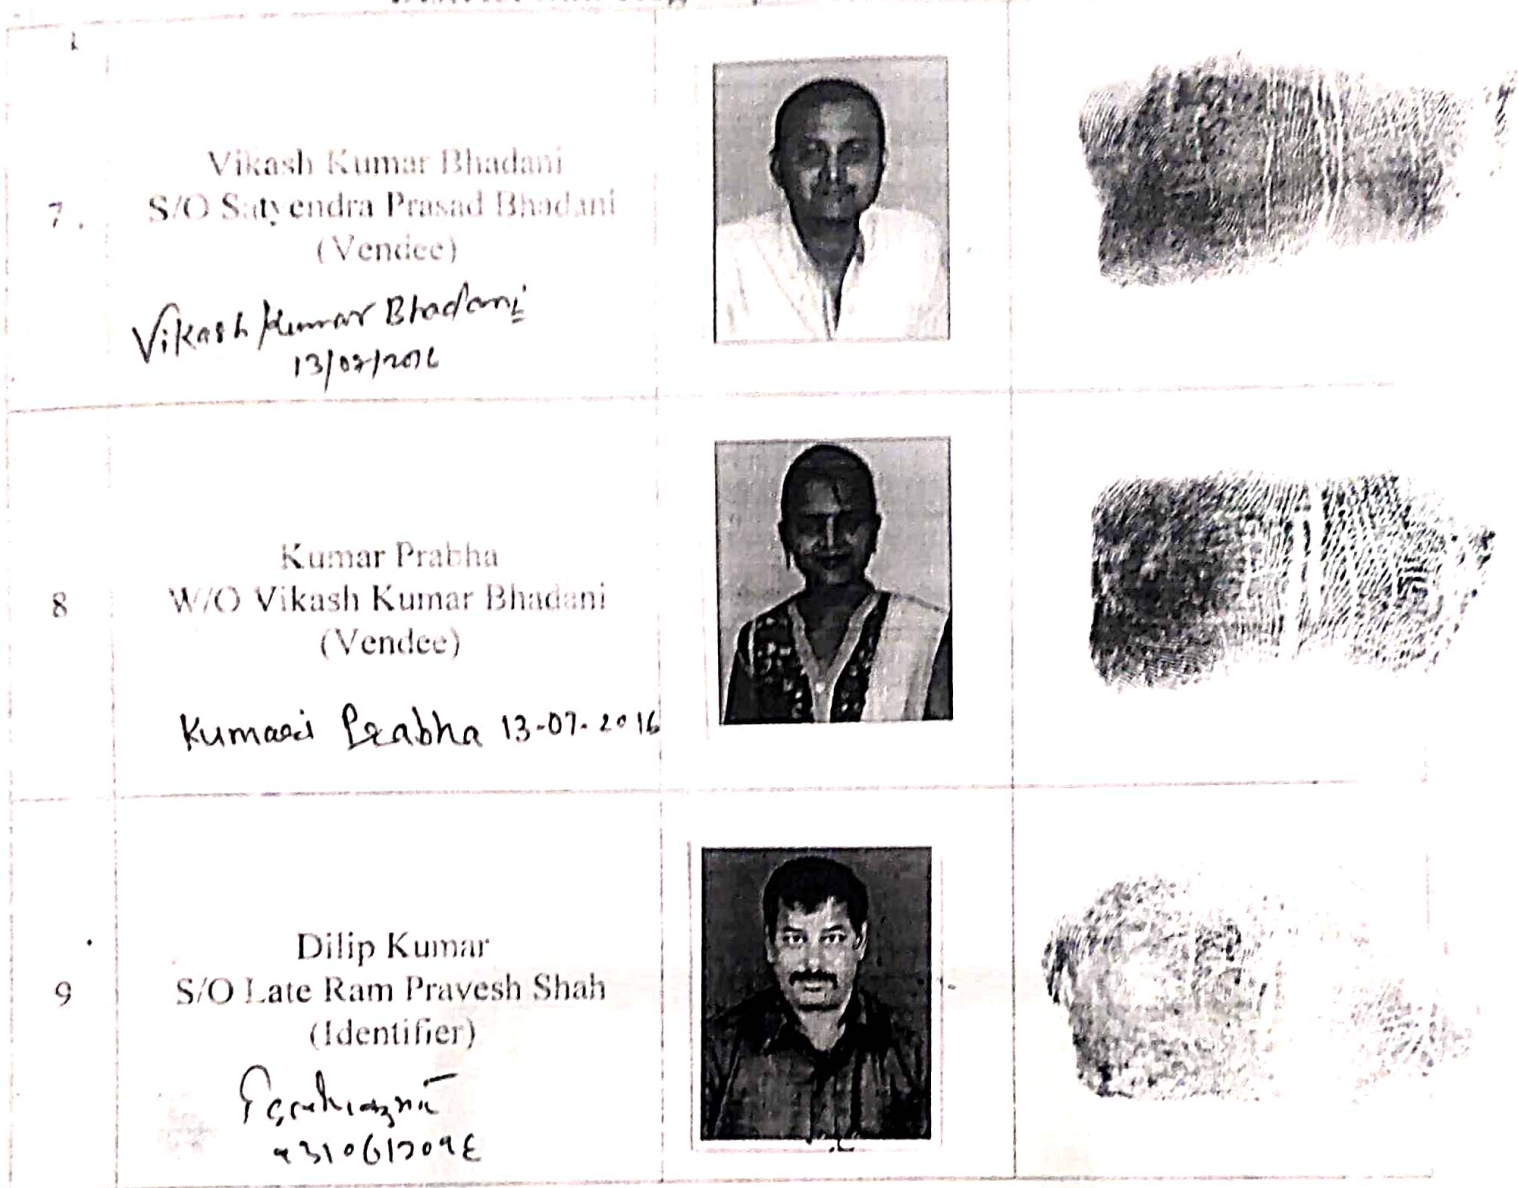 7.
Vikash Kumar Bhadani
S/O Satyendra Prasad Bhadani
(Vendee)
Vikash Kumar Bhadani
13/07/2016
8
Kumar Prabha
W/O Vikash Kumar Bhadani
(Vendee)
Kumari Prabha 13-07-2016
9
Dilip Kumar
S/O Late Ram Pravesh Shah
(Identifier)